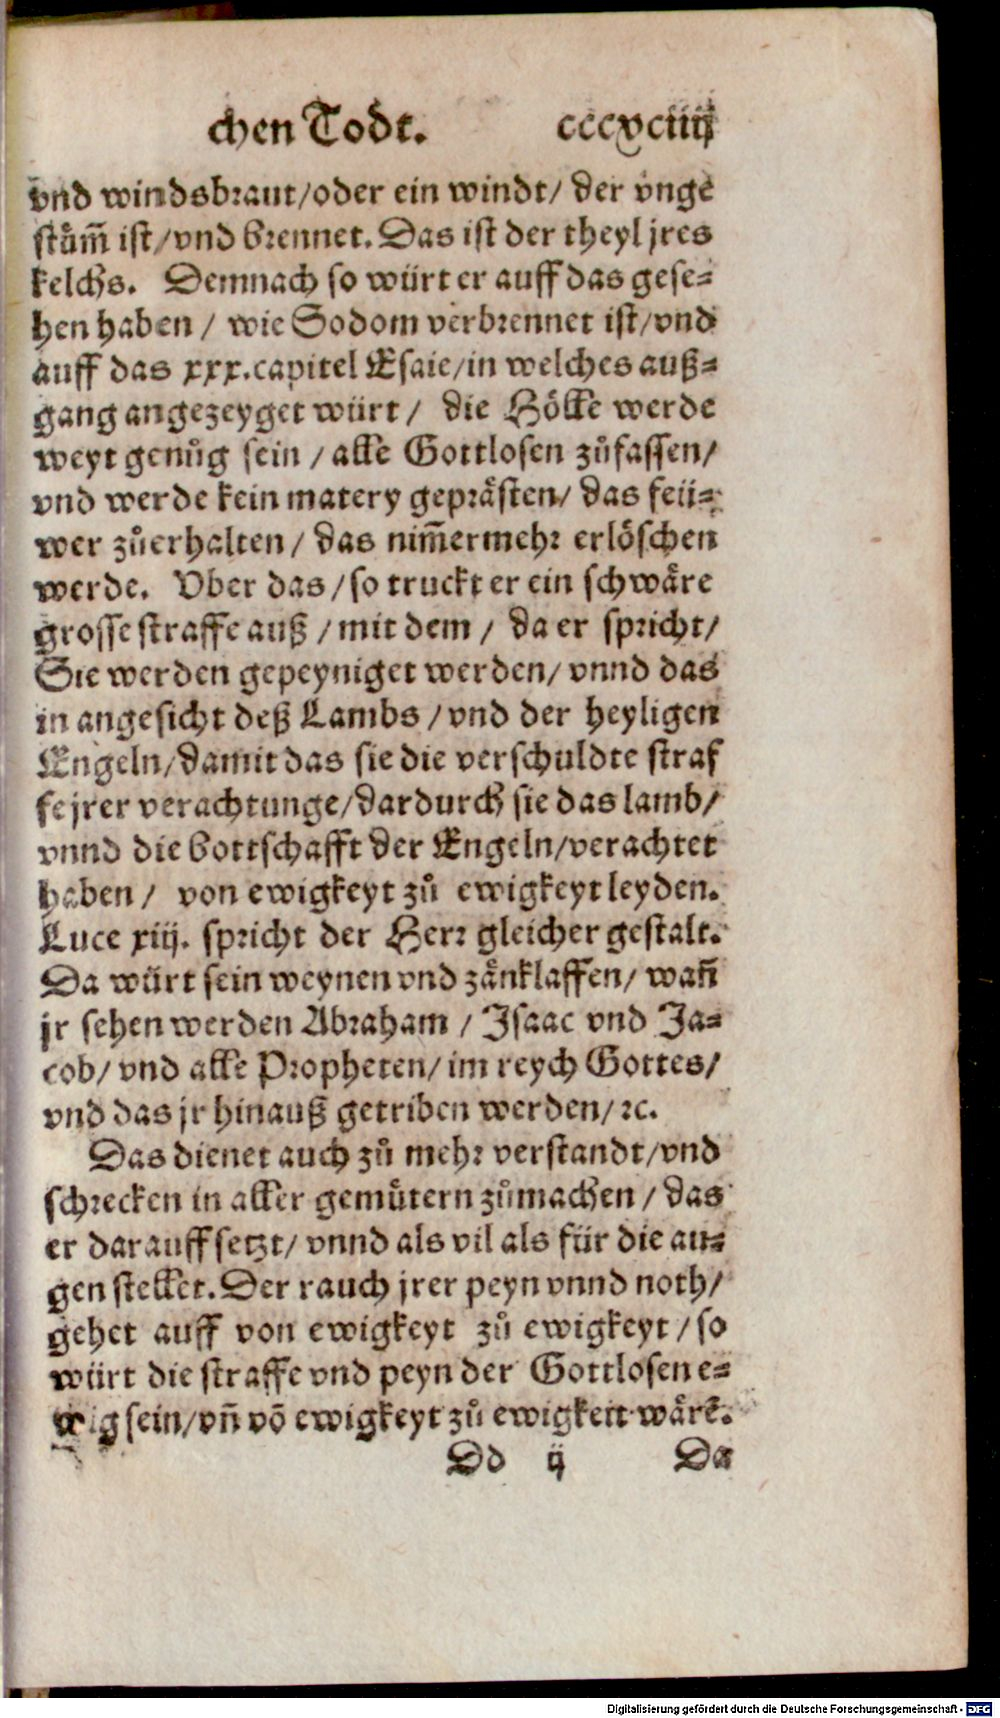 chen Todt. cccxciiij
vnd windsbraut/oder ein windt/ der vnge
stům̃ ist/vnd brennet. Das ist der theyl jres
kelchs. Demnach so würt er auff das gese-
hen haben / wie Sodom verbrennet ist/vnd
auff das xxx.capitel Esaie/in welches auß-
gang angezeyget würt/ die Hölle werde
weyt genůg sein / alle Gottlosen zůfassen/
vnd werde kein matery geprästen/ das feü-
wer zůerhalten/ das nim̃ermehr erlöschen
werde. Vber das/so truckt er ein schwäre
grosse straffe auß / mit dem / da er spricht/
Sie werden gepeyniget werden/ vnnd das
in angesicht deß Lambs /vnd der heyligen
Engeln/damit das sie die verschuldte straf
fe jrer verachtunge/dardurch sie das lamb/
vnnd die bottschafft der Engeln/verachtet
haben / von ewigkeyt zů ewigkeyt leyden.
Luce xiij. spricht der Herr gleicher gestalt.
Da würt sein weynen vnd zänklaffen/ wañ
jr sehen werden Abraham / Isaac vnd Ja-
cob/ vnd alle Propheten/ im reych Gottes/
vnd das jr hinauß getriben werden/ꝛc.
Das dienet auch zů mehr verstandt/vnd
schrecken in aller gemütern zůmachen / das
er darauff setzt/ vnnd als vil als für die au-
gen stellet. Der rauch jrer peyn vnnd noth/
gehet auff von ewigkeyt zů ewigkeyt / so
würt die straffe vnd peyn der Gottlosen e-
wig sein/vñ võ ewigkeyt zů ewigkeit wärẽ.
Dd ij Da
Digitalisierung gefördert durch die Deutsche Forschungsgemeinschaft - DFG